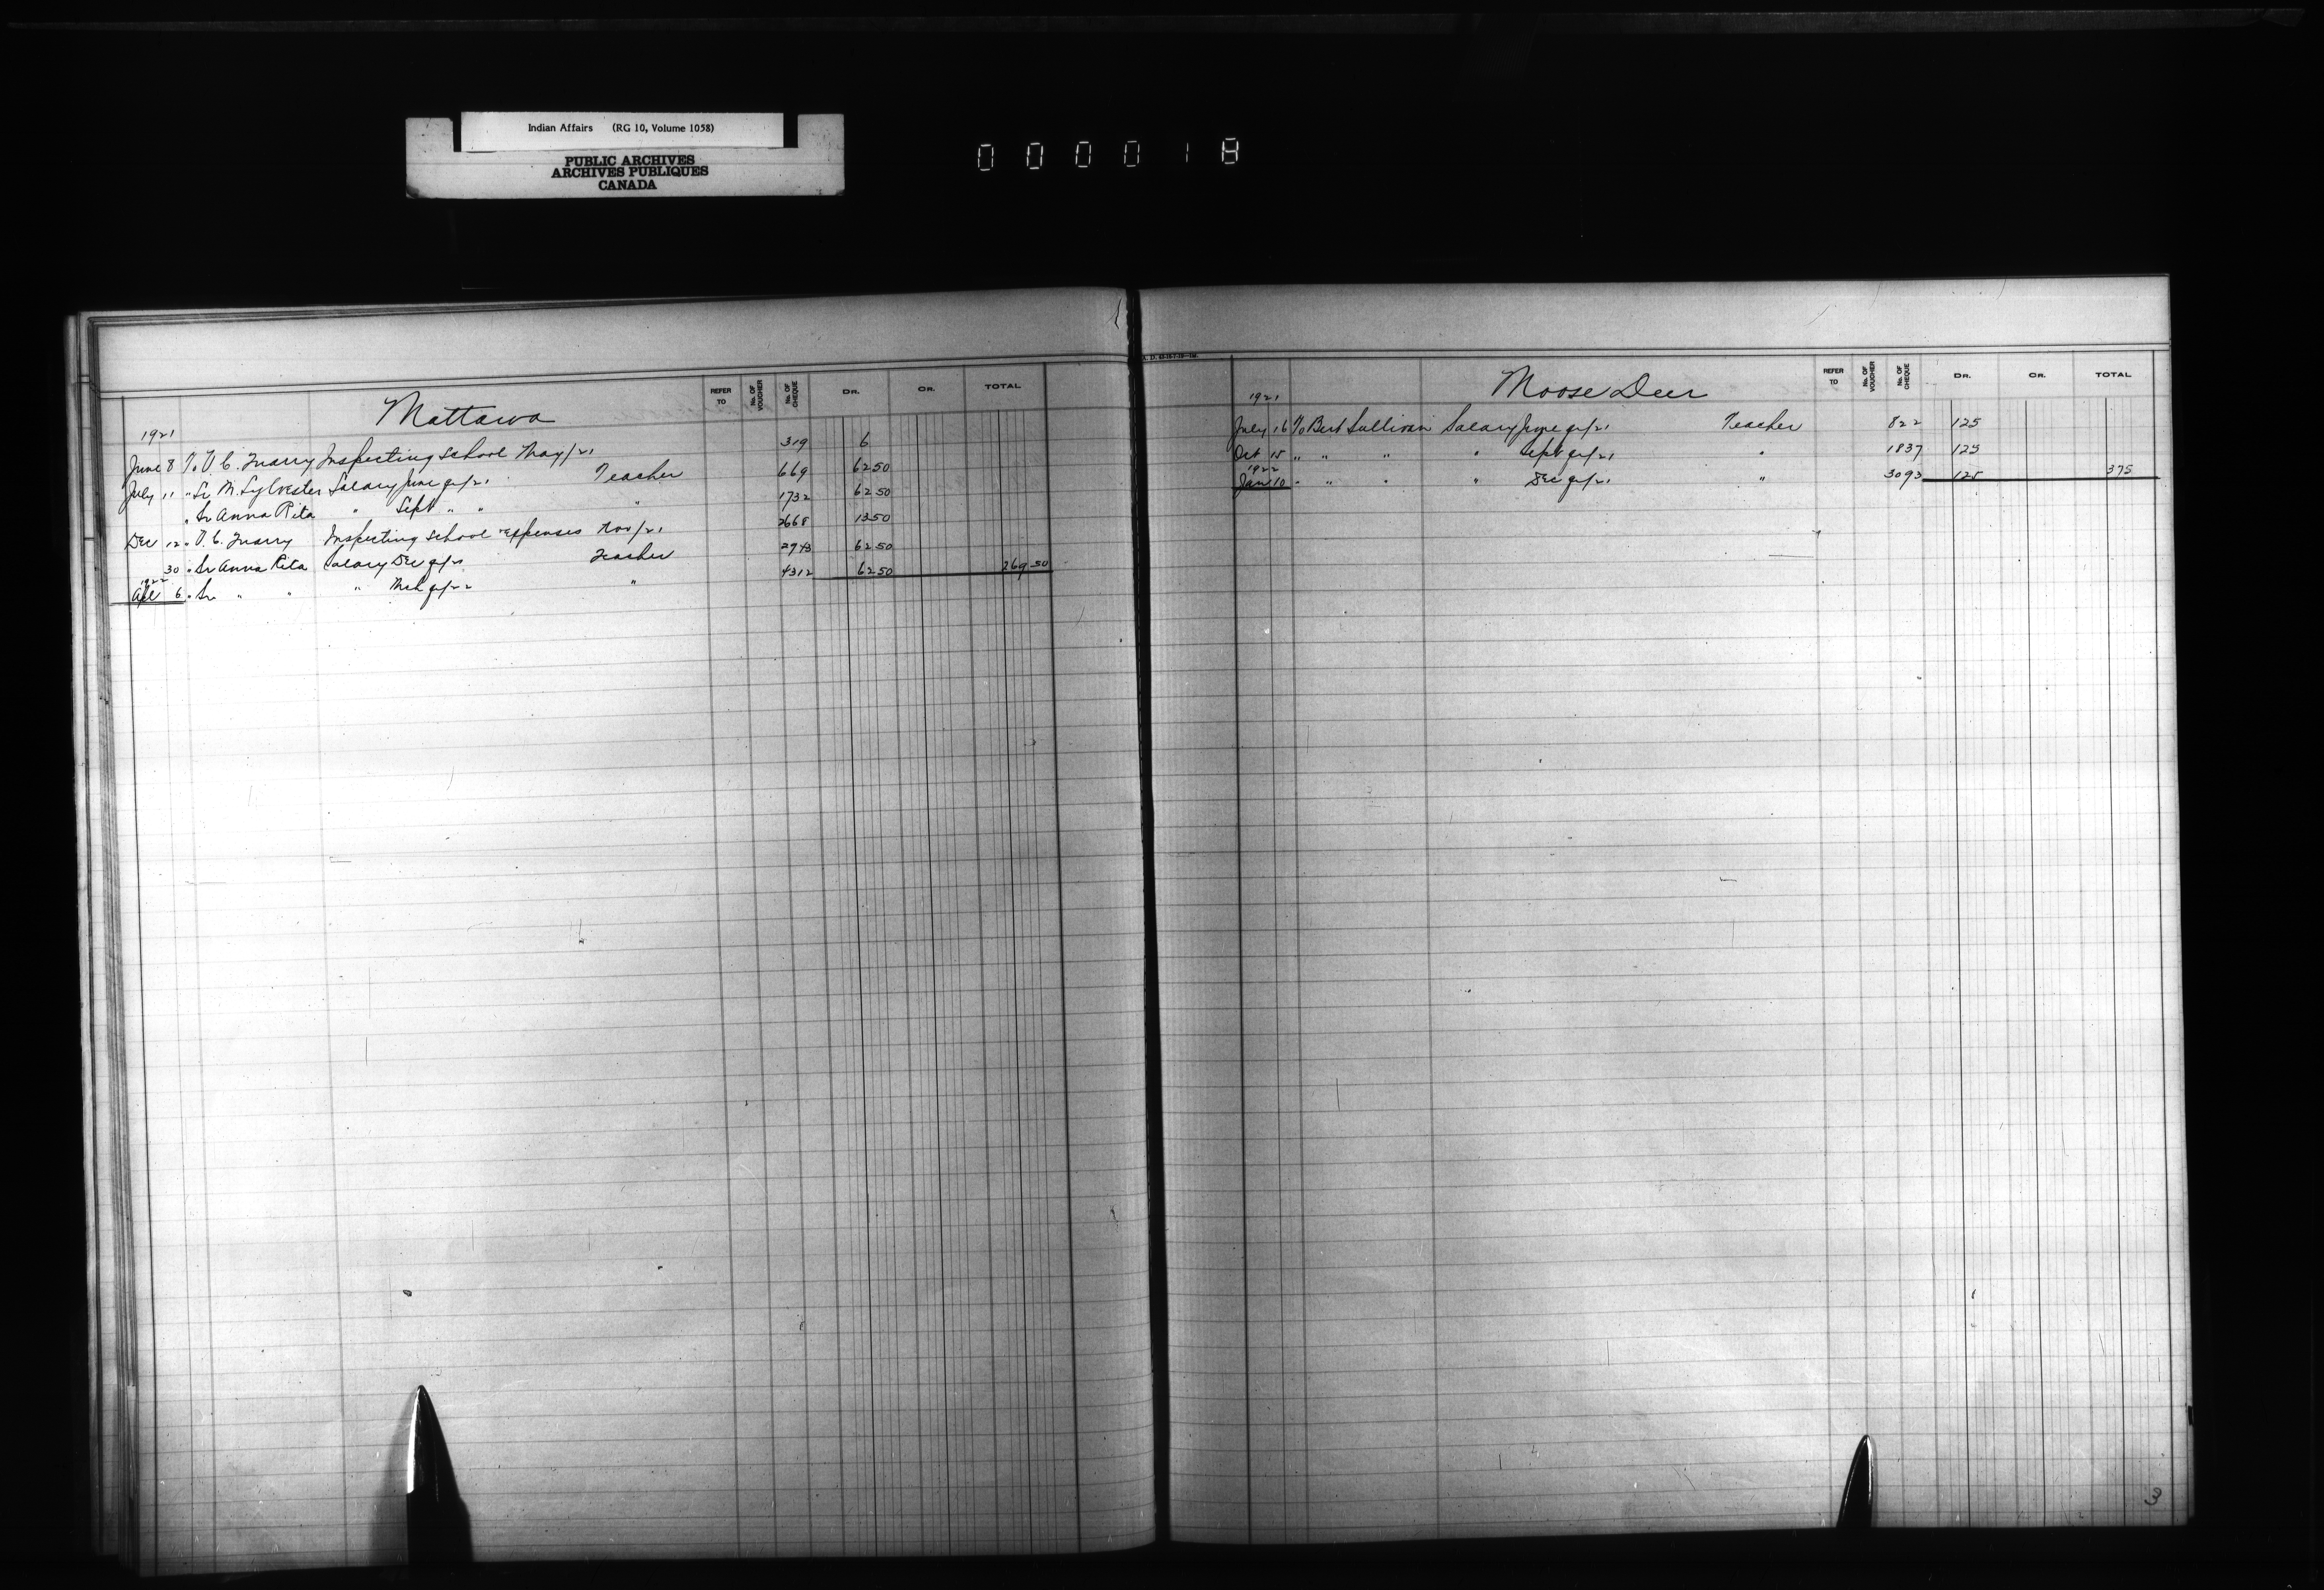 Indian Affairs (RG 10, Volume 1058)
PUBLIC ARCHIVES
ARCHIVES PUBLIQUES
CANADA
000018
Mattawa
REFER TO
No. OF VOUCHER
No. OF CHEQUE
DR.
CR.
TOTAL
1921
June 8 To V.C. Quarry Inspecting school May/21 319 6
July 11 " Sr M. Sylvester Salary June qr/21 Teacher 669 62 50
" Sr Anna Rita " Sept " " " 1732 62 50
Dec 12 " V.C. Quarry Inspecting school expenses Nov/21 2668 13 50
30 " Sr Anna Rita Salary Dec qr/21 Teacher 2943 62 50
1922
Apl 6 " Sr " " " Mch qr/22 " 4312 62 50 269 50
Moose Deer
REFER TO
No. OF VOUCHER
No. OF CHEQUE
DR.
CR.
TOTAL
1921
July 16 To Bert Sullivan Salary June qr/21 Teacher 822 125
Oct 15 " " " " Sept qr/21 " 1837 125
1922
Jan 10 " " " " Dec qr/21 " 3093 125 375
3